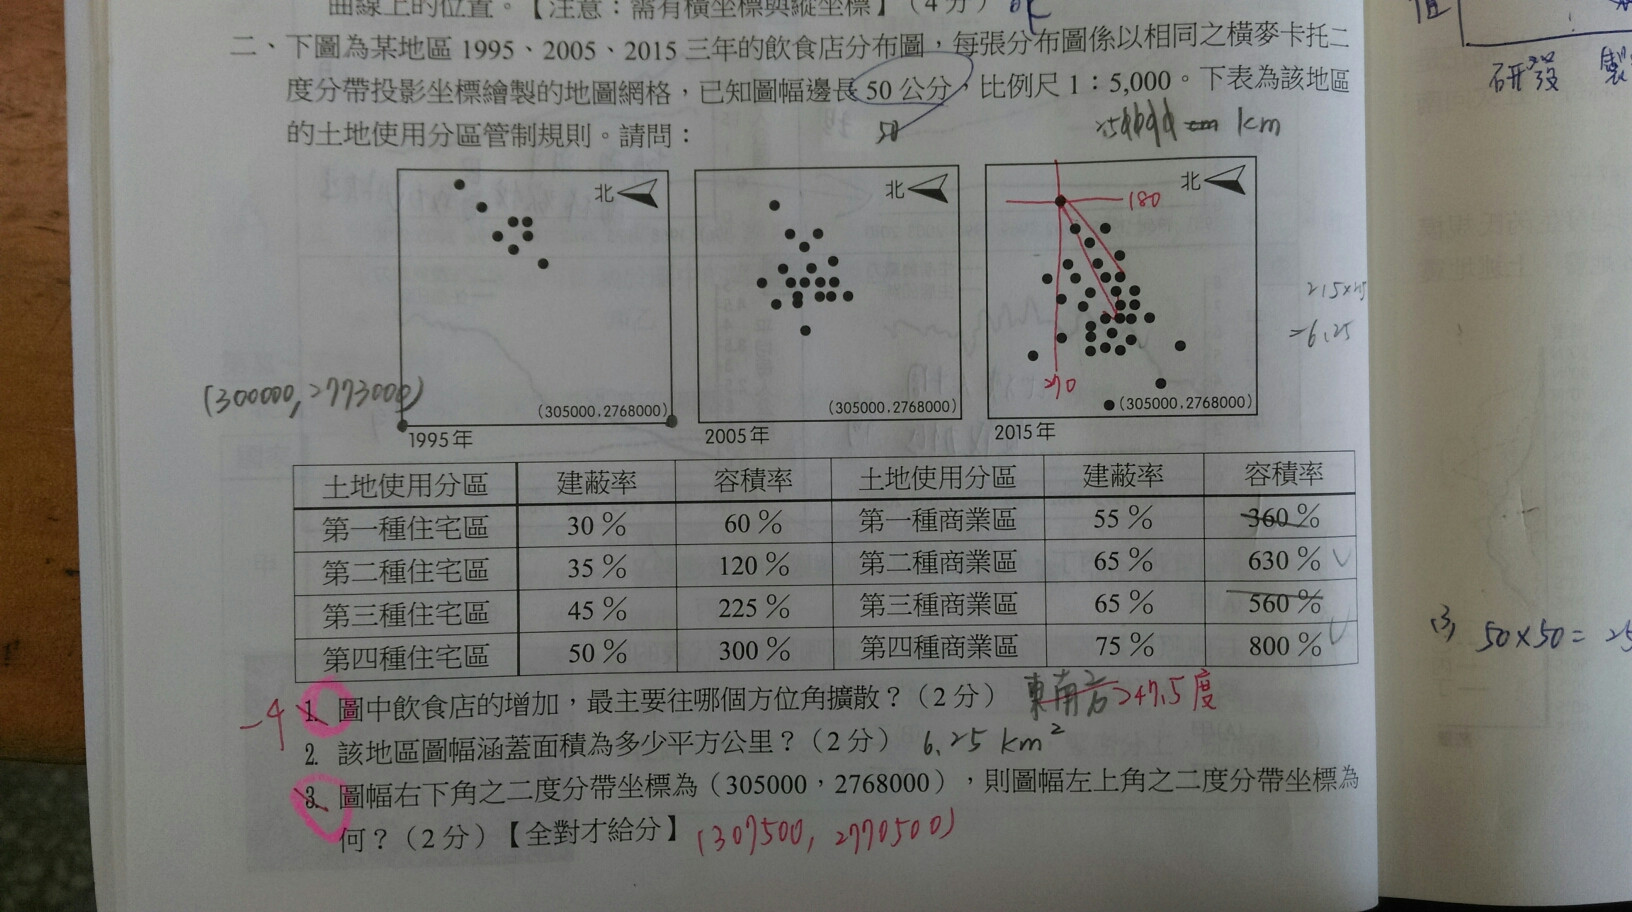 曲線上的位置。【注意：需有橫坐標與縱坐標】（4分）
值
研發 製
二、下圖為某地區 1995、2005、2015 三年的飲食店分布圖，每張分布圖係以相同之橫麥卡托二
度分帶投影坐標繪製的地圖網格，已知圖幅邊長 50 公分，比例尺 1：5,000。下表為該地區
的土地使用分區管制規則。請問：
50
km
北
北
北
180
270
2.5×2.5
=6.25
(300000, 2773000)
(305000,2768000)
(305000,2768000)
(305000,2768000)
1995年
2005年
2015年
土地使用分區 建蔽率 容積率 土地使用分區 建蔽率 容積率
第一種住宅區 30％ 60％ 第一種商業區 55％ 360％
第二種住宅區 35％ 120％ 第二種商業區 65％ 630％
第三種住宅區 45％ 225％ 第三種商業區 65％ 560％
第四種住宅區 50％ 300％ 第四種商業區 75％ 800％
(3) 50×50=25
-4
1. 圖中飲食店的增加，最主要往哪個方位角擴散？（2分） 東南方 247.5度
2. 該地區圖幅涵蓋面積為多少平方公里？（2分） 6.25 km²
3. 圖幅右下角之二度分帶坐標為（305000，2768000），則圖幅左上角之二度分帶坐標為
何？（2分）【全對才給分】 (307500, 2770500)